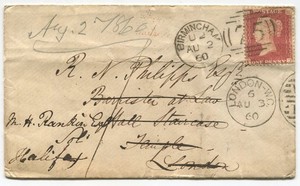 Aug. 2 1860
BIRMINGHAM
AU 2
60
75
R. N. Philipps Esq
Barrister at Law
M. H. Rankin Esq Hall Staircase
Temple
Halifax
London
LONDON-W.C
6
AU 3
60